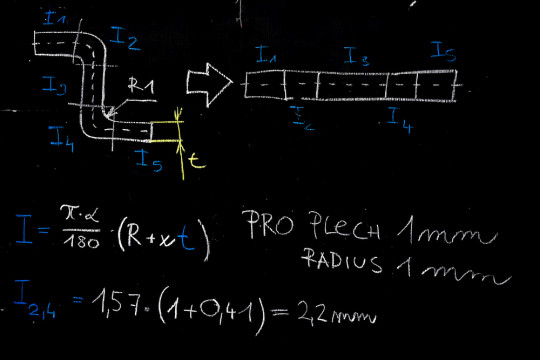 I1
I2
I3
R1
I4
I5
t
I1
I3
I5
I2
I4
I = π·α/180 · (R+xt)
PRO PLECH 1mm
RADIUS 1mm
I2,4 = 1,57·(1+0,41) = 2,2mm